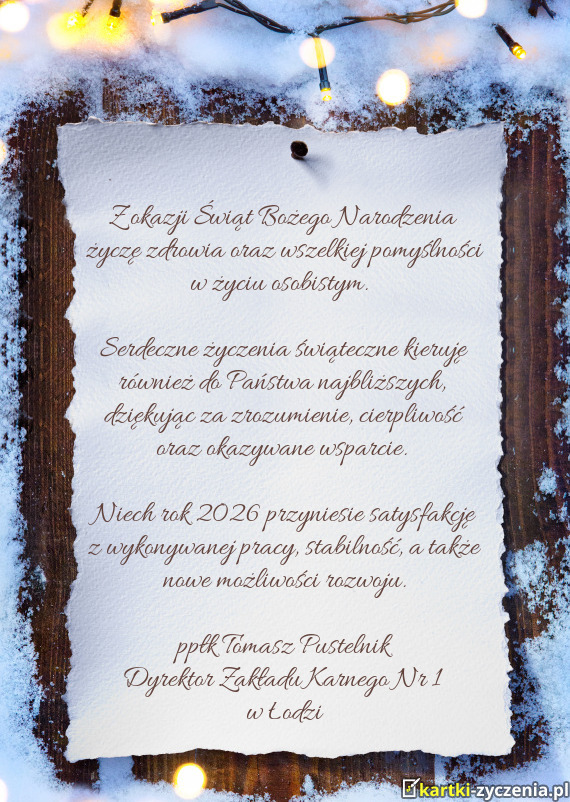 Z okazji Świąt Bożego Narodzenia
życzę zdrowia oraz wszelkiej pomyślności
w życiu osobistym.
Serdeczne życzenia świąteczne kieruję
również do Państwa najbliższych,
dziękując za zrozumienie, cierpliwość
oraz okazywane wsparcie.
Niech rok 2026 przyniesie satysfakcję
z wykonywanej pracy, stabilność, a także
nowe możliwości rozwoju.
ppłk Tomasz Pustelnik
Dyrektor Zakładu Karnego Nr 1
w Łodzi
kartki-zyczenia.pl